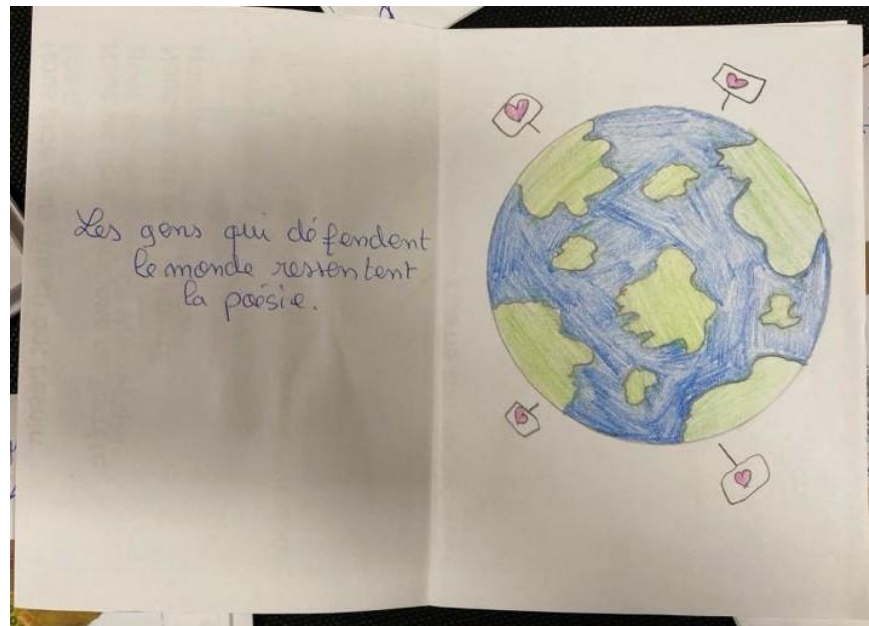 Les gens qui défendent
le monde ressentent
la poésie.